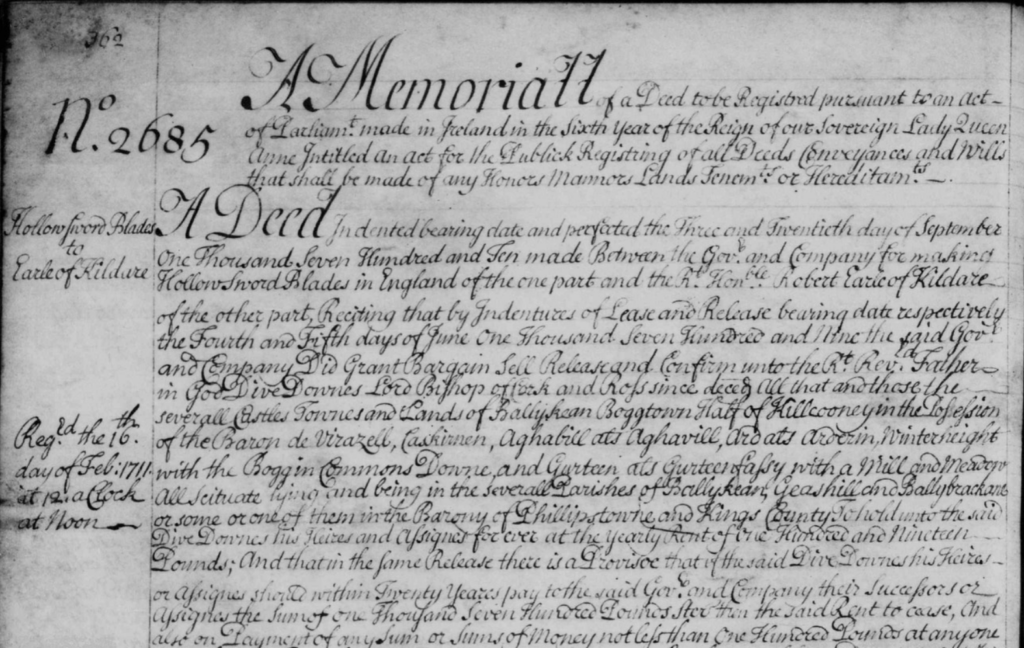 362
A Memoriall of a Deed to be Registred pursuant to an Act
No. 2685
of Parliamt. made in Ireland in the sixth Year of the Reign of our Sovereign Lady Queen
Anne Intitled an act for the Publick Registring of all Deeds Conveyances and Wills
that shall be made of any Honors Mannors Lands Tenemts. or Hereditamts.
Hollow Sword Blades
to
Earle of Kildare
A Deed Indented bearing date and perfected the Three and Twentieth day of September
One Thousand Seven Hundred and Ten made Between the Govr. and Company for making
Hollow Sword Blades in England of the one part and the Rt. Honble. Robert Earle of Kildare
of the other part, Reciting that by Indentures of Lease and Release bearing date respectively
the Fourth and Fifth days of June One Thousand Seven Hundred and Nine the said Govr.
and Company Did Grant Bargain Sell Release and Confirm unto the Rt. Revd. Father
in God Dive Downes Lord Bishop of Cork and Ross since deced All that and those the
severall Castles Townes and Lands of Ballykean Boggtown Half of Killcooney in the Possession
Regd. the 16th.
day of Feb: 1711
at 12 a Clock
at Noon
of the Baron de Virazell, Caskirnen, Aghabill als Aghavill, Ard als Arderin, Winterheight
with the Boggin Commons Downe, and Gurteen als Gurteenfassy with a Mill and Meadow
All Scituate lying and being in the severall Parishes of Ballykean, Geashill and Ballybrackan
or some or one of them in the Barony of Phillipstowne and Kings County To hold unto the said
Dive Downes his Heires and Assignes for ever at the yearly Rent of One Hundred and Nineteen
Pounds; And that in the same Release there is a Provisoe that if the said Dive Downes his Heires
or Assignes should within Twenty Yeares pay to the said Govr. and Company their Successors or
Assignes the Sum of one Thousand Seven Hundred Pounds ster then the said Rent to cease, And
also on Payment of any Sum or Sums of Money not less than One Hundred Pounds at any one